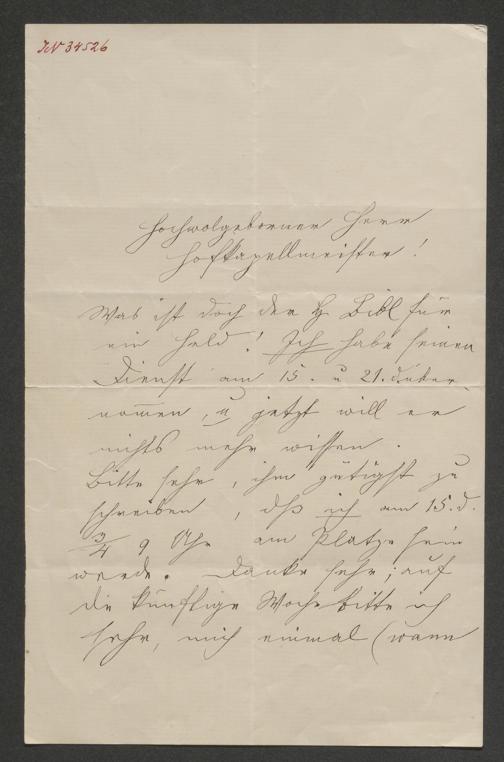 JN 34526
Hochwolgeborner Herr
Hofkapellmeister!
Was ist doch der H. Bibl für
ein Held! Ich habe seinen
Dienst am 15. u 21. über
nommen, u jetzt will er
nichts mehr wissen.
Bitte sehr, ihm gütigst zu
schreiben, dß ich am 15. d.
3/4 9 Uhr am Platze sein
werde. Danke sehr; auf
die künftige Woche bitte ich
sehr, mich einmal (wann